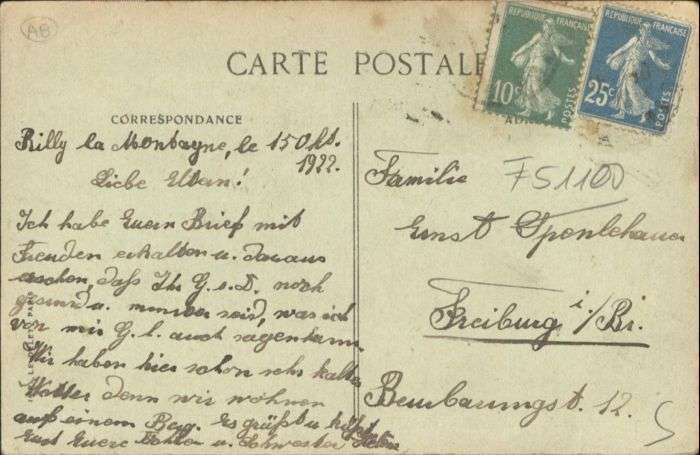 AB
CARTE POSTALE
RÉPUBLIQUE FRANÇAISE
10c
POSTES
RÉPUBLIQUE FRANÇAISE
25c
POSTES
CORRESPONDANCE
Rilly la Montagne, le 15 Okt.
1922.
Liebe Eltern!
Ich habe Euern Brief mit
Freuden erhalten u. daraus
ersehen, daß Ihr G. s. D. noch
gesund u. munter seid, was ich
von mir G. l. auch sagen kann.
Wir haben hier schon sehr kaltes
Wetter denn wir wohnen
auf einem Berg. Es grüßt u. küßt
Euch Euere Tochter u. Schwester
Familie
F51100
Ernst Sponlehauer
Freiburg i/Br.
12.